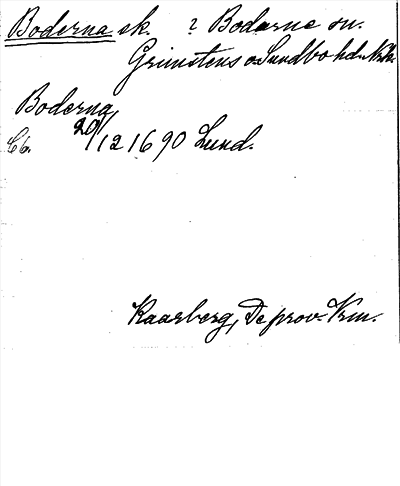 Boderna sk. ? Bodarne sn.
Grimstens o. Sundbo hd. Nrk.
Boderna,
Cb. 20/12 1690 Lund.
Kaarberg, De prov. Krm.